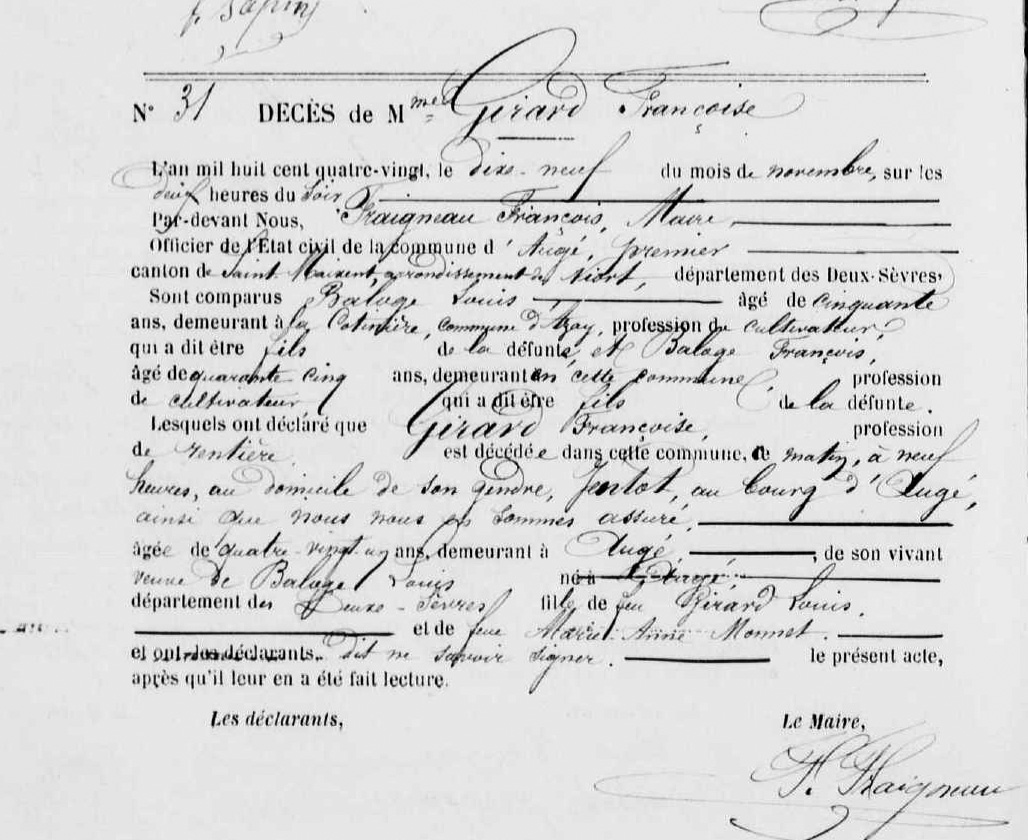 f. Sapin
N° 31 DECÈS de Mme Girard Françoise
L'an mil huit cent quatre-vingt, le dixe-neuf du mois de novembre, sur les
deux heures du soir
Par-devant Nous, Fraigneau François, Maire
Officier de l'État civil de la commune d'Augé, premier
canton de Saint Maixent, arrondissement de Niort, département des Deux-Sèvres,
Sont comparus Baloge Louis âgé de cinquante
ans, demeurant à la Cotinière, commune d'Azay, profession de cultivateur,
qui a dit être fils de la défunte, et Baloge François,
âgé de quarante cinq ans, demeurant en cette commune, profession
de cultivateur qui a dit être fils de la défunte.
Lesquels ont déclaré que Girard Françoise, profession
de rentière est décédée dans cette commune, ce matin, à neuf
heures, au domicile de son gendre, au bourg d'Augé,
ainsi que nous nous en sommes assuré.
âgée de quatre-vingt un ans, demeurant à Augé, de son vivant
veuve de Baloge Louis né à
département des Deuxe-Sèvres fille de feu Girard Louis,
et de feue Marie Anne Monnet.
et ont les déclarants, dit ne savoir signer. le présent acte,
après qu'il leur en a été fait lecture.
Les déclarants, Le Maire,
F. Fraigneau